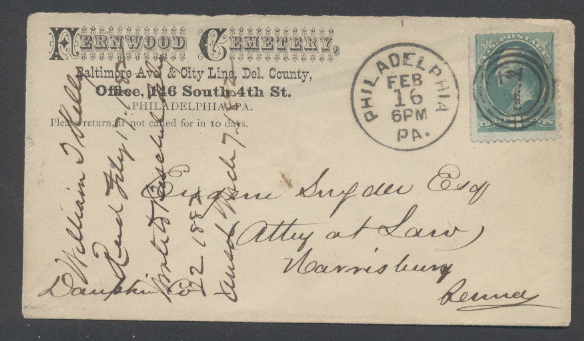 FERNWOOD CEMETERY,
Baltimore Ave. & City Line, Del. County,
Office, 146 South 4th St.
PHILADELPHIA, PA.
Please return, if not called for in 10 days.
PHILADELPHIA
FEB
16
6PM
PA.
Eugene Snyder Esq
Atty at Law
Harrisburg
Dauphin Co
Penna
William T
Recd Feby 17 1882
22 1882